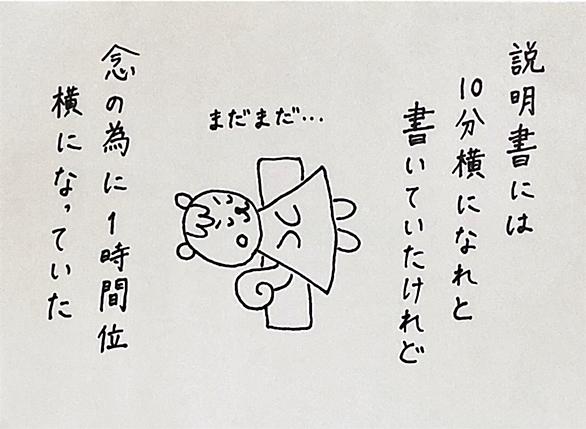 説明書には
10分横になれと
書いていたけれど
まだまだ…
念の為に1時間位
横になっていた